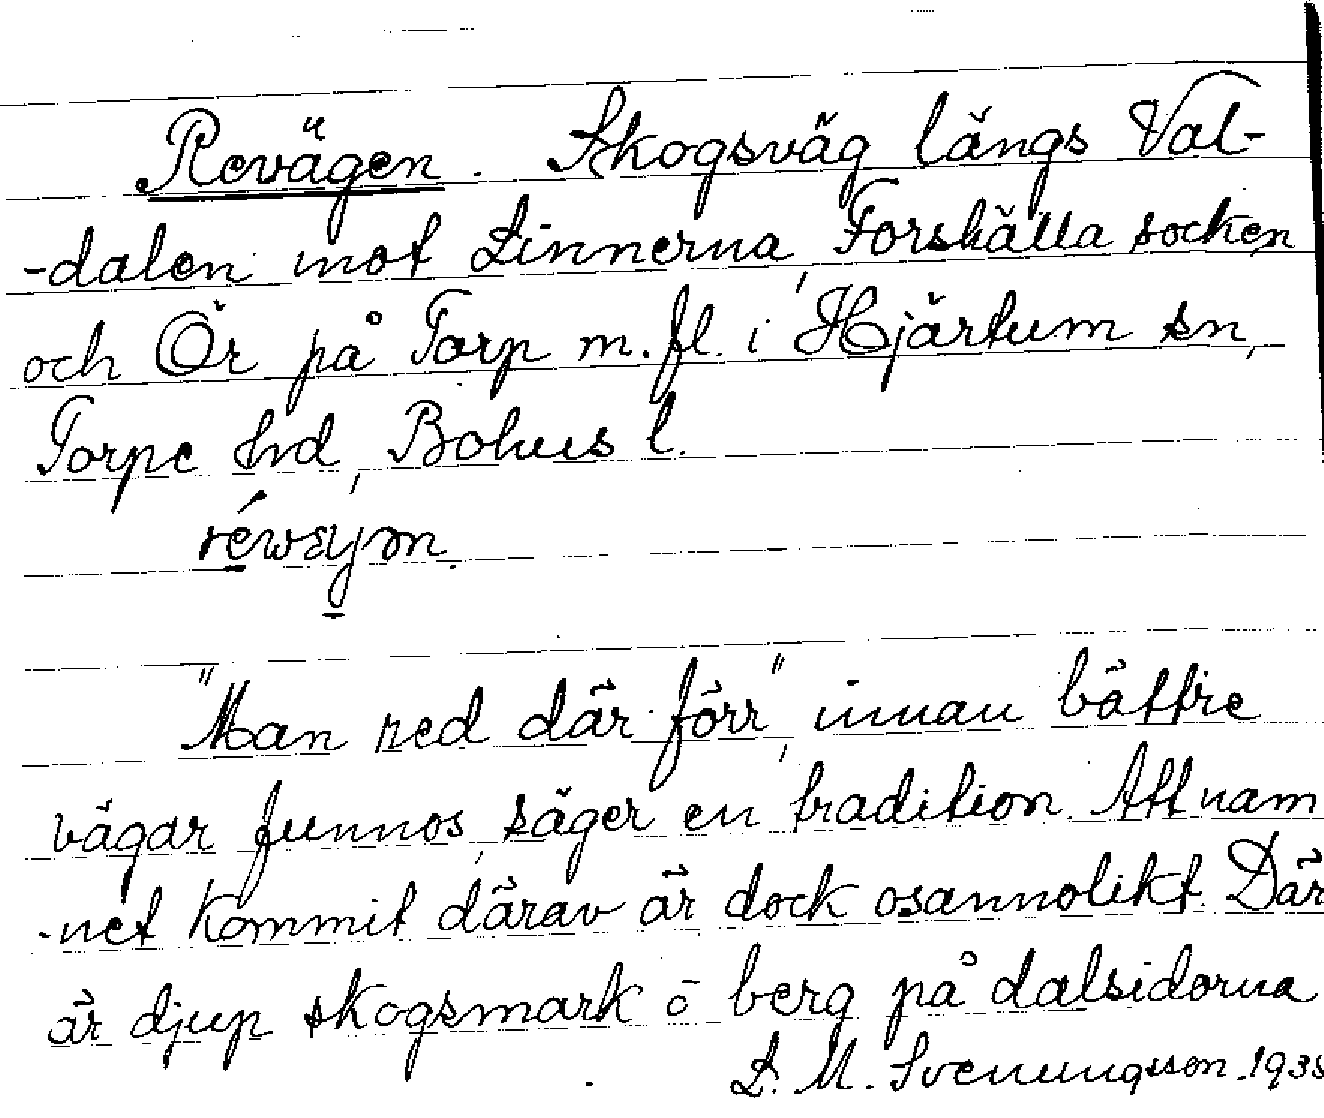 Revägen. Skogsväg längs Val-
-dalen mot Linnerna, Forshälla socken
och Ör på Torp m. fl. i Hjärtum sn,
Torpe hrd, Bohus l.
"Man red där förr", innan bättre
vägar funnos, säger en tradition. Att nam
-net kommit därav är dock osannolikt. Där
är djup skogsmark o berg på dalsidorna
L. M. Svenungsson. 1935